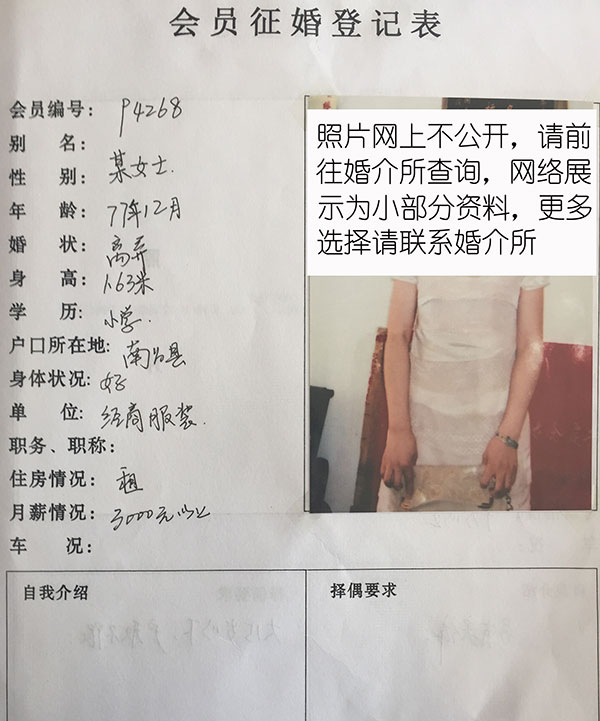 会员征婚登记表
会员编号：P4268
别 名：某女士.
性 别：
年 龄：77年12月
婚 状：离异
身 高：1.63米
学 历：小学.
户口所在地：南召县
身体状况：好
单 位：经商服装.
职务、职称：
住房情况：租
月薪情况：3000元以上
车 况：
照片网上不公开，请前
往婚介所查询，网络展
示为小部分资料，更多
选择请联系婚介所
自我介绍
择偶要求